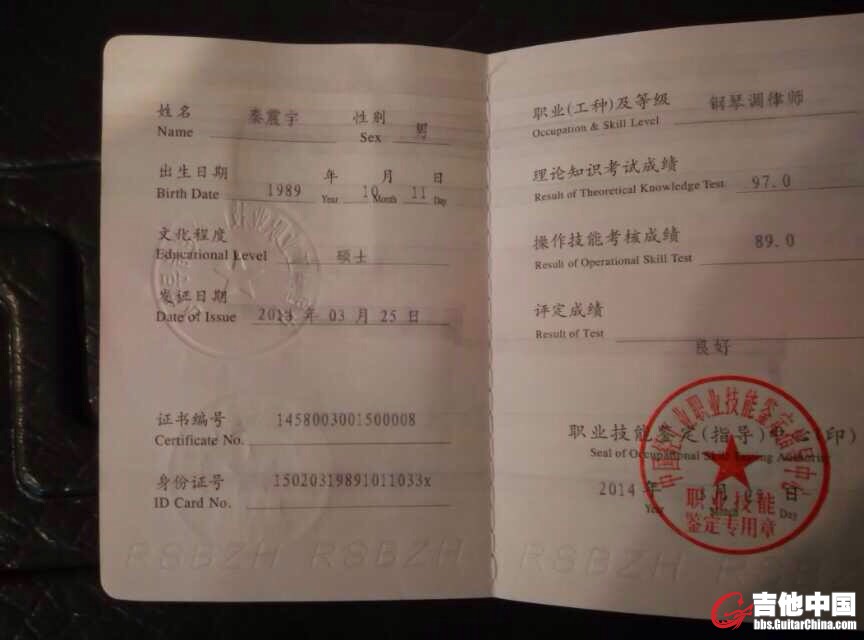 姓名 秦震宇 性别 男
Name Sex
出生日期 年 月 日
Birth Date 1989 Year 10 Month 11 Day
文化程度
Educational Level 硕士
发证日期
Date of Issue 年 03 月 25 日
证书编号 1458003001500008
Certificate No.
身份证号 15020319891011033x
ID Card No.
RSBZH RSBZH
职业(工种)及等级 钢琴调律师
Occupation & Skill Level
理论知识考试成绩
Result of Theoretical Knowledge Test 97.0
操作技能考核成绩 89.0
Result of Operational Skill Test
评定成绩
Result of Test
良好
职业技能鉴定(指导)中心(印)
Seal of Occupational Skill Testing Authority
2014 年 月 日
Year Month Day
职业技能
鉴定专用章
RSBZH RSBZH
吉他中国
bbs.GuitarChina.com